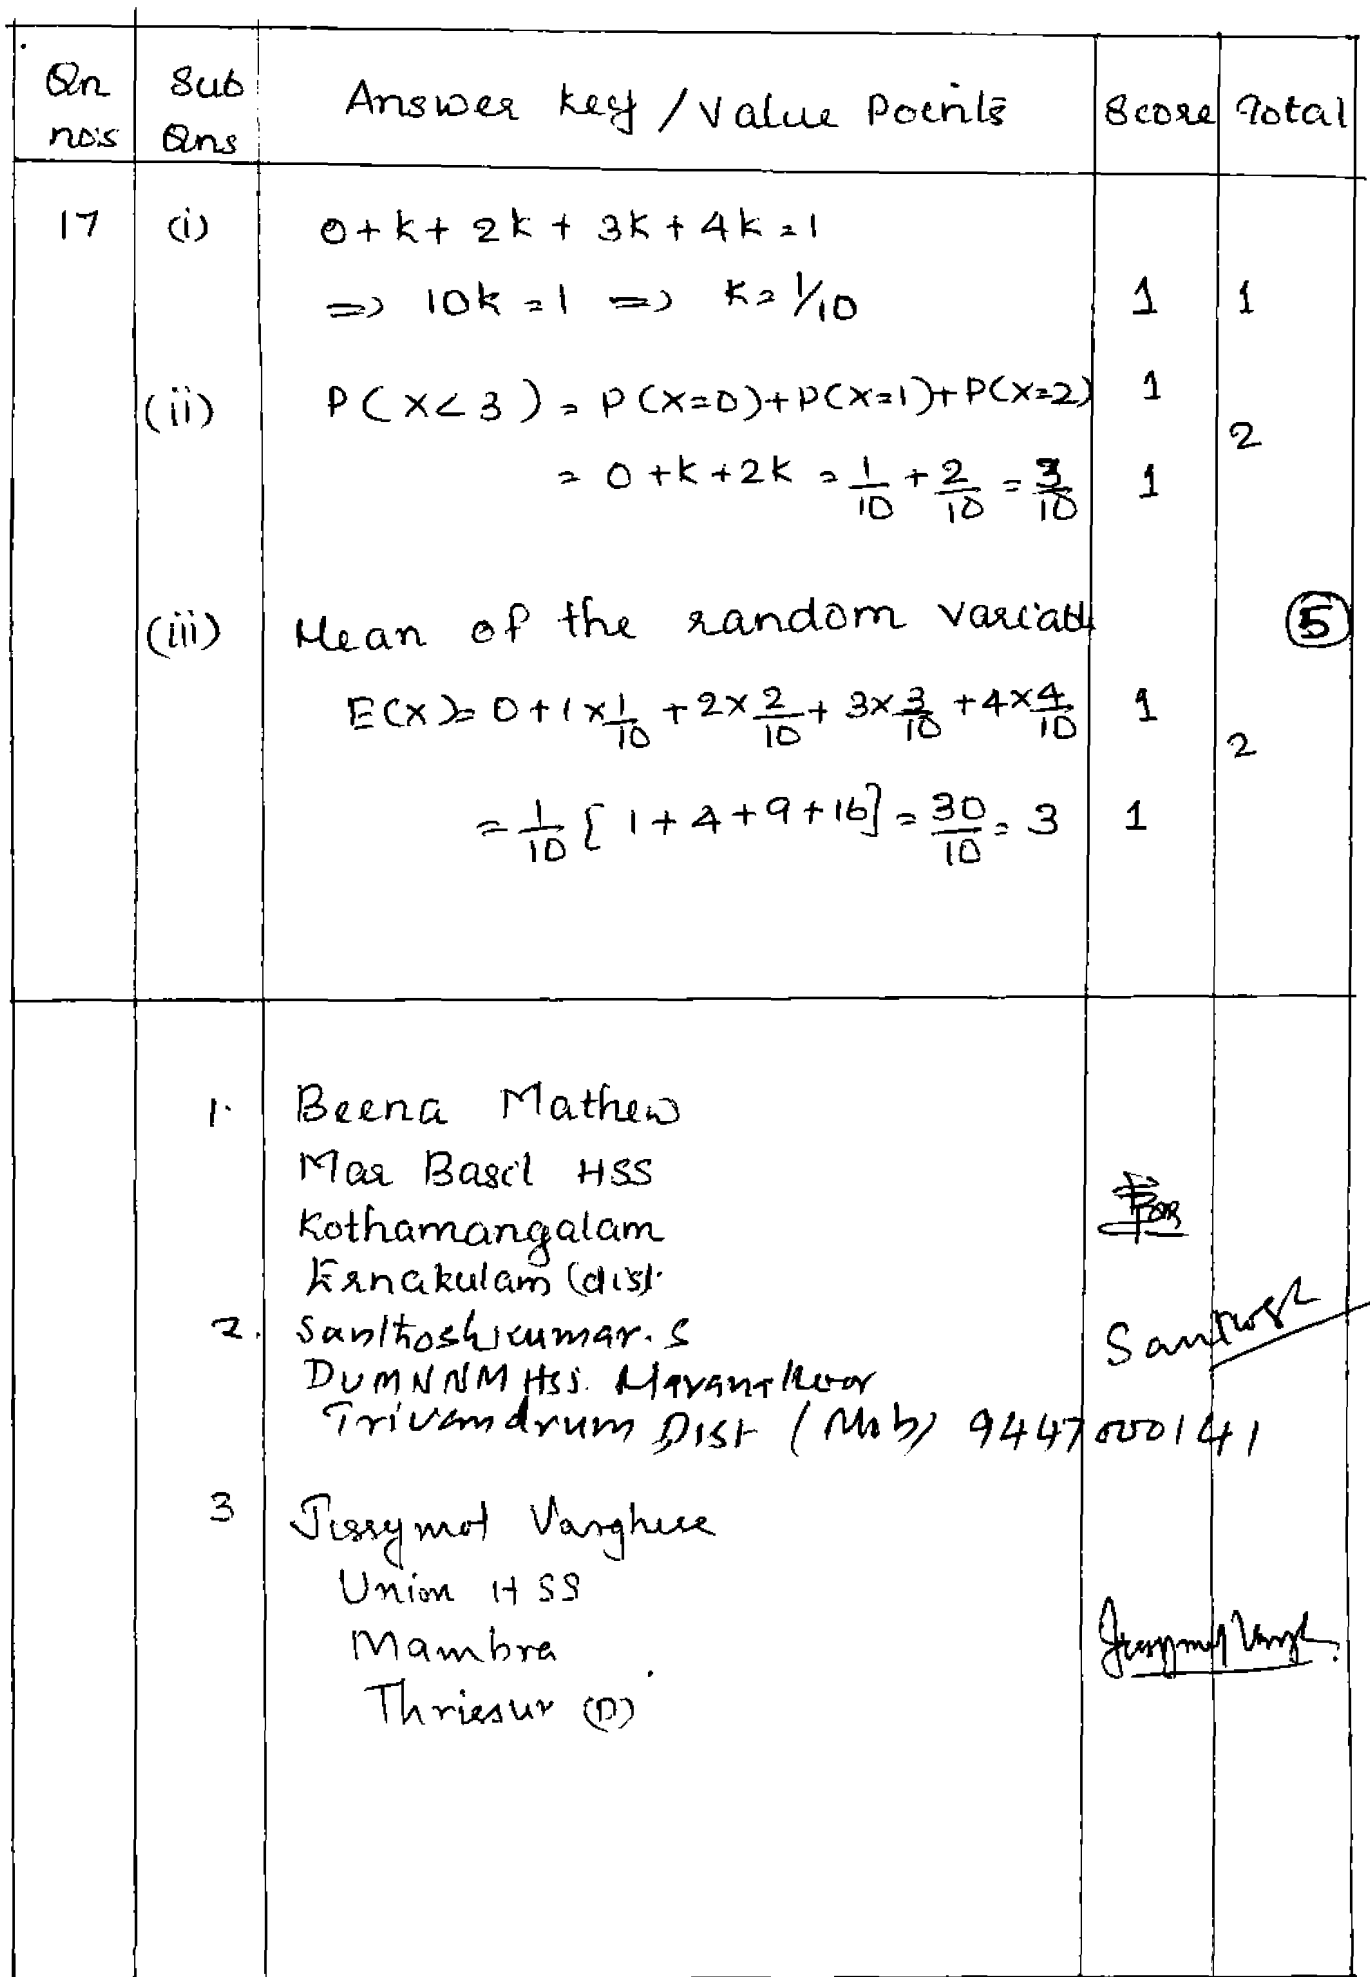 Qn Sub Answer key / Value Points Score Total
no's Qns
17 (i) 0 + k + 2k + 3k + 4k = 1
=> 10k = 1 => k = 1/10 1 1
(ii) P(X<3) = P(X=0)+P(X=1)+P(X=2) 1
2
= 0 + k + 2k = 1/10 + 2/10 = 3/10 1
(iii) Mean of the random variabl
5
E(X) = 0 + 1×1/10 + 2×2/10 + 3×3/10 + 4×4/10 1
2
= 1/10 [ 1 + 4 + 9 + 16] = 30/10 = 3 1
1. Beena Mathew
Mar Basil HSS
Kothamangalam
Ernakulam (dist.
2. Santhoshkumar. S
DUMNNM HSS.
Santhosh
Trivandrum Dist (Mob) 9447000141
3 Jissymol Varghese
Union HSS
Mambra
Thrissur (D)